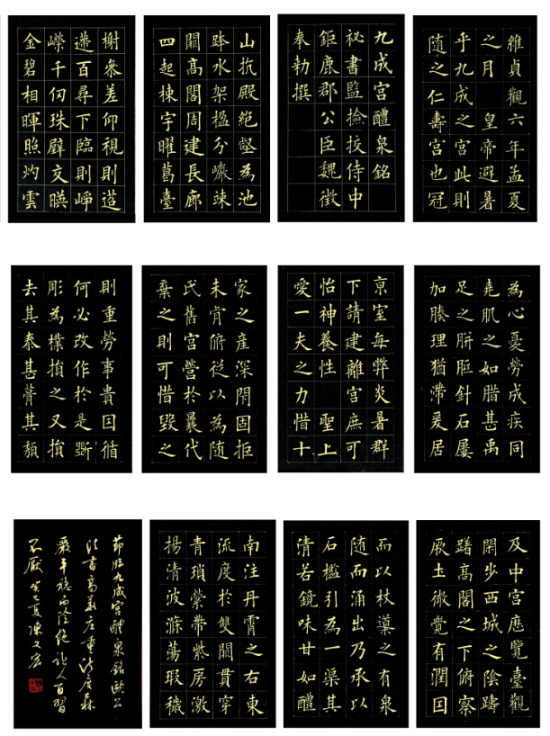 維貞觀六年孟夏
之月 皇帝避暑
乎九成之宮此則
隨之仁壽宮也冠
九成宮醴泉銘
祕書監撿挍侍中
鉅鹿郡公臣魏徵
奉勅撰
山抗殿絕壑為池
跨水架楹分巖竦
闕高閣周建長廊
四起棟宇膠葛臺
榭參差仰視則迢
遰百尋下臨則崢
嶸千仞珠壁交暎
金碧相暉照灼雲
為心憂勞成疾同
堯肌之如腊甚禹
足之胼胝針石屢
加腠理猶滯爰居
京室每弊炎暑群
下請建離宮庶可
怡神養性 聖上
愛一夫之力惜十
家之產深閇固拒
未肯俯從以為隨
氏舊宮營於曩代
棄之則可惜毀之
則重勞事貴因循
何必改作於是斲
彫為樸損之又損
去其泰甚葺其頹
及中宮歷覽臺觀
閑步西城之陰躊
躇高閣之下俯察
厥土微覺有潤因
而以杖導之有泉
隨而涌出乃承以
石檻引為一渠其
清若鏡味甘如醴
南注丹霄之右東
流度於雙闕貫穿
青瑣縈帶紫房激
揚清波滌蕩瑕穢
節臨九成宮醴泉銘歐公
法書高華庄重法度森
嚴平穩而險絕讓人百習
不厭 癸巳夏陳文